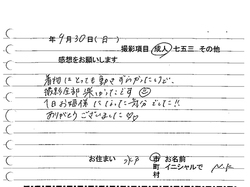 年 9月30日(日)
撮影項目 成人 七五三 その他
感想をお願いします
着物はとっても動きずらかったけど、
撮影全部楽しかったです
1日お姫様になった気分でした!!
ありがとうございました♡♡
お住まい 水戸 市町村 お名前 イニシャルで